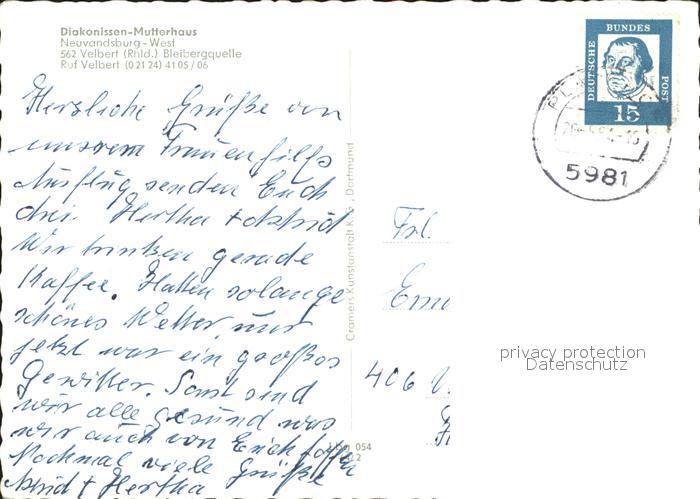 Diakonissen-Mutterhaus
Neuvandsburg-West
562 Velbert (Rhld.) Bleibergquelle
Ruf Velbert (0 21 24) 41 05 / 06
Herzliche Grüße von
unserem Frauenhilfs
Ausflug senden Euch
drei Hertha + Astrid
Wir trinken gerade
Kaffee. Hatten solange
schönes Wetter, nur
jetzt war ein großes
Gewitter. Sonst sind
wir alle gesund was
wir auch von Euch hoffen
Nochmal viele Grüße
Astrid + Hertha
Cramers Kunstanstalt KG., Dortmund
054
DEUTSCHE BUNDES POST
15
5981
Frl.
406
privacy protection
Datenschutz